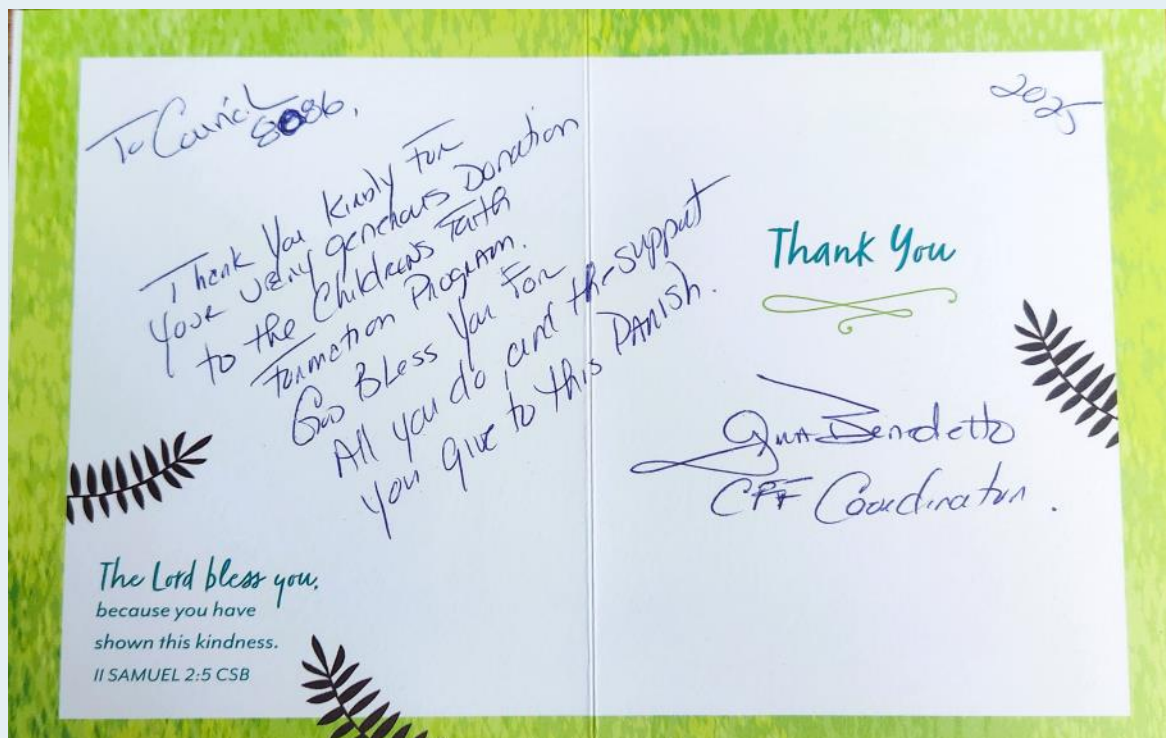 To Council
8086,
Thank You Kindly For
your very generous Donation
to the Childrens Faith
Formation Program.
God Bless You For
All you do and the support
you give to this Parish.
The Lord bless you,
because you have
shown this kindness.
II SAMUEL 2:5 CSB
2025
Thank You
Gina Benedetto
CFF Coordinator.